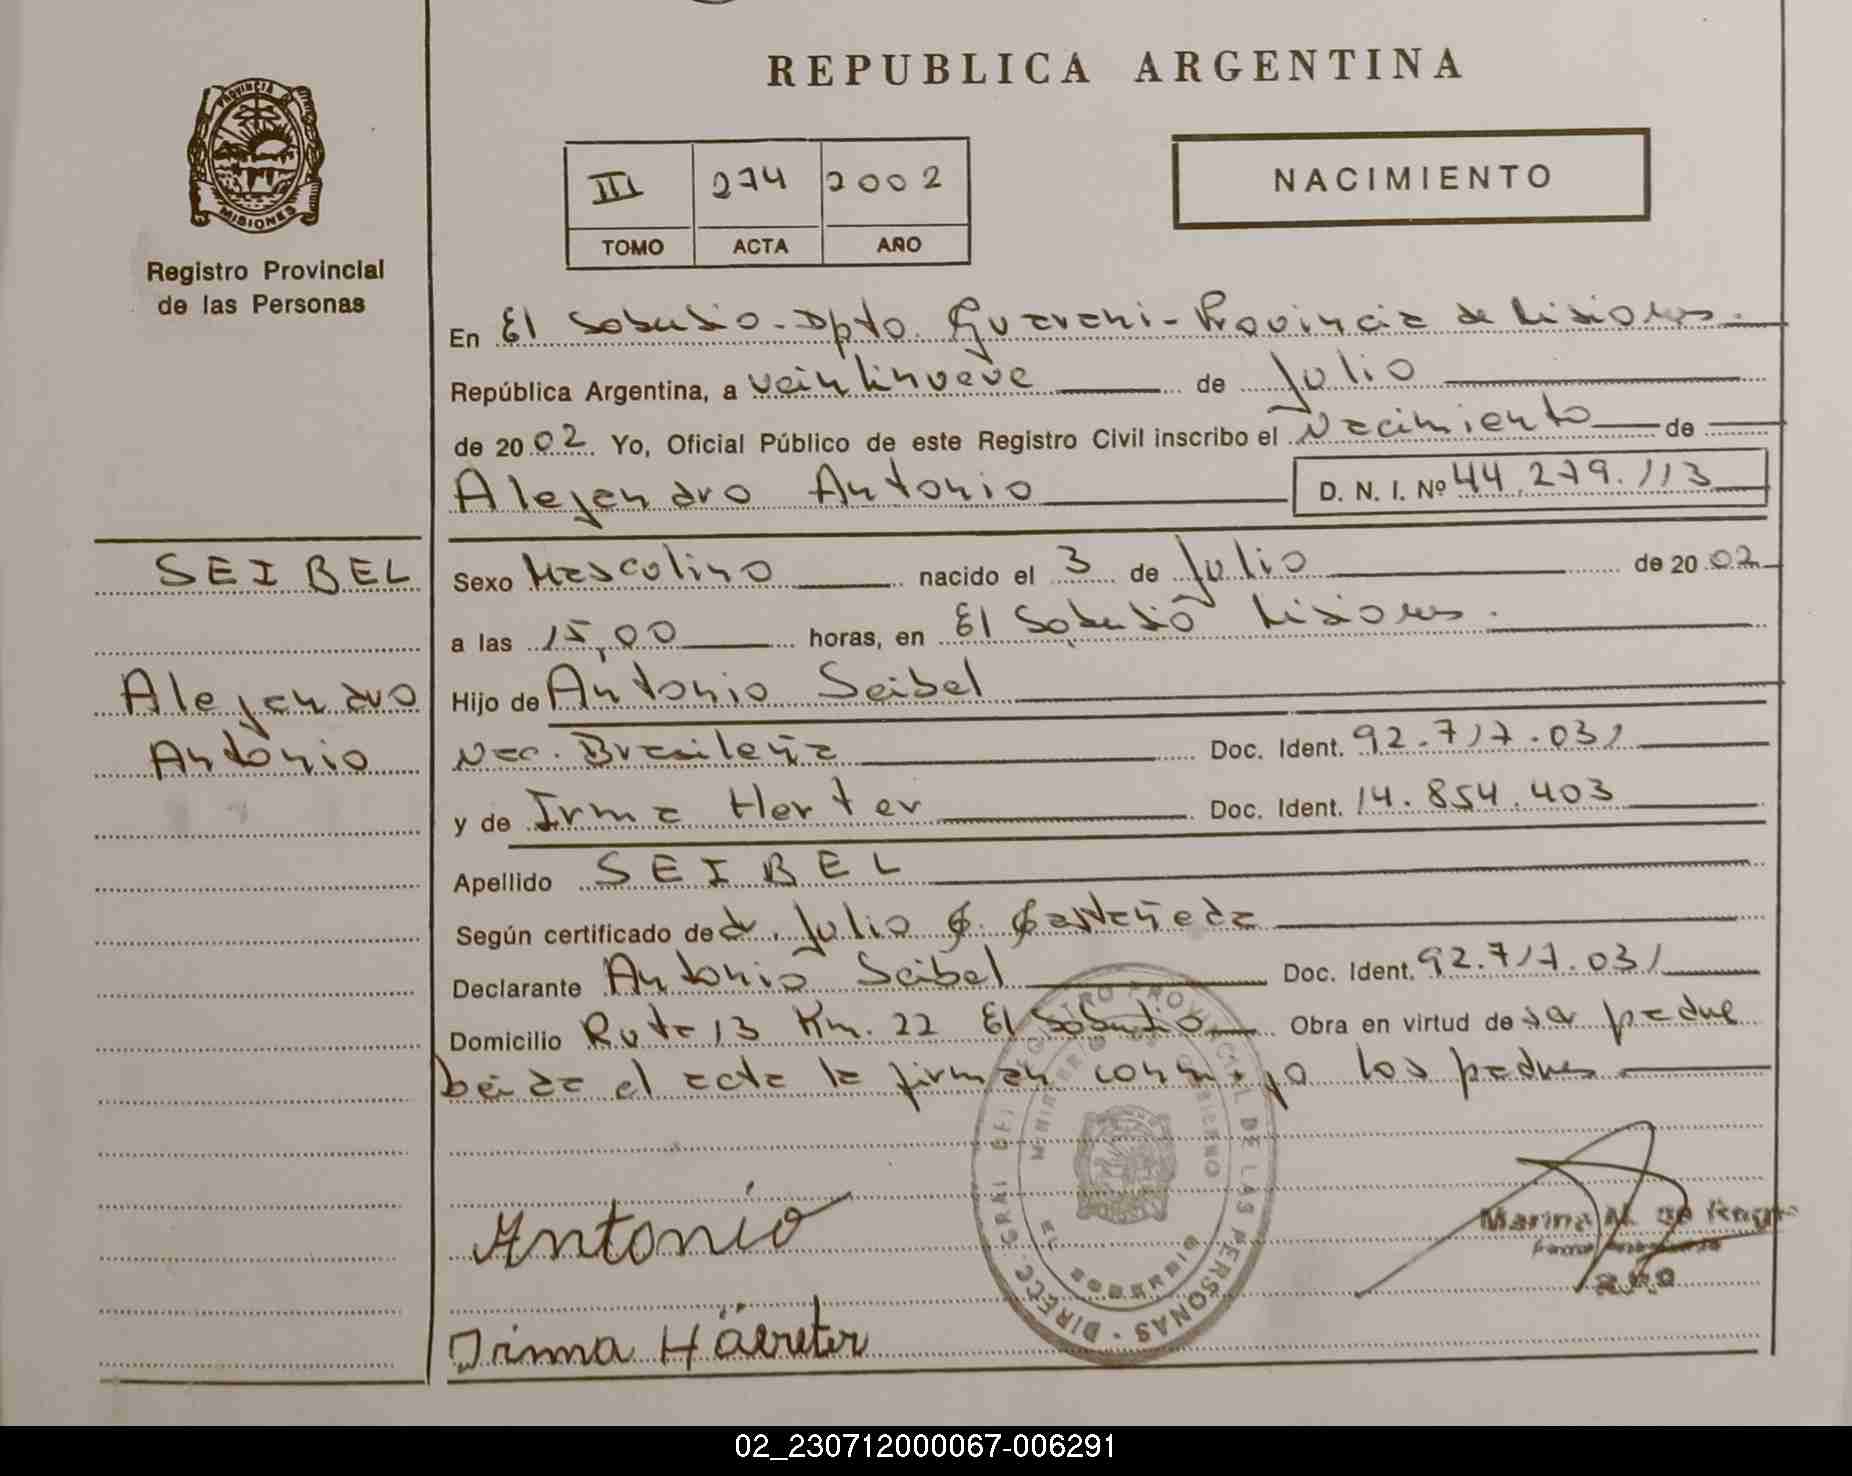 REPUBLICA ARGENTINA
PROVINCIA DE MISIONES
Registro Provincial
de las Personas
III 274 2002
TOMO ACTA AÑO
NACIMIENTO
En El Soberbio - Dpto. Guarani - Provincia de Misiones.
República Argentina, a veintinueve de Julio
de 2002 Yo, Oficial Público de este Registro Civil inscribo el Nacimiento de
Alejandro Antonio D. N. I. Nº 44.279.113
SEIBEL
Alejandro
Antonio
Sexo Masculino nacido el 3 de Julio de 2002
a las 15,00 horas, en El Soberbio Misiones.
Hijo de Antonio Seibel
Nac. Brasileña Doc. Ident. 92.717.031
y de Irma Herter Doc. Ident. 14.854.403
Apellido SEIBEL
Según certificado de dr. Julio C. Castañeda
Declarante Antonio Seibel Doc. Ident. 92.717.031
Domicilio Ruta 13 Km. 22 El Soberbio Obra en virtud de ser padre
Leida el acta la firman conmigo los padres
Antonio
Irma Häereter
DIRECC. GRAL DEL REGISTRO PROVINCIAL DE LAS PERSONAS
MINISTERIO DE GOBIERNO
EL SOBERBIO
Marina N. de
02_230712000067-006291